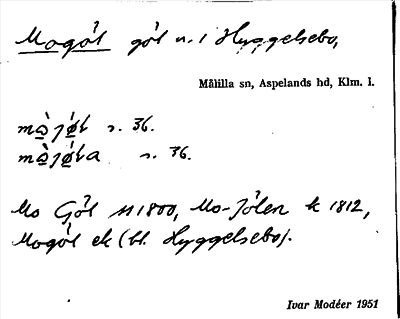 Mogöl göl n. i Hyggelsebo,
Målilla sn, Aspelands hd, Klm. l.
r. 36.
r. 36.
Mo Göl 1800, Mo-Jölen k 1812,
Mogöl ek (bl. Hyggelsebo).
Ivar Modéer 1951